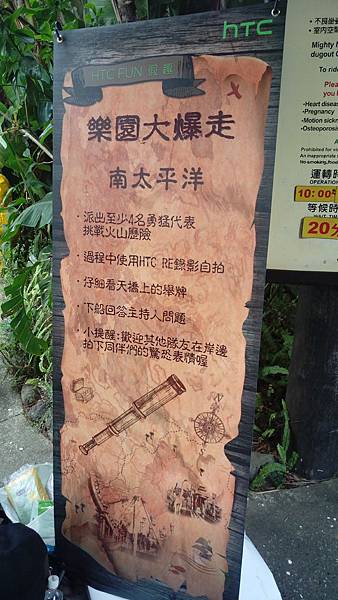 hTC
HTC FUN 假趣
樂園大爆走
南太平洋
·派出至少4名勇猛代表
挑戰火山歷險
·過程中使用HTC RE錄影自拍
·仔細看天橋上的舉牌
·下船回答主持人問題
·小提醒:歡迎其他隊友在岸邊
拍下同伴們的驚恐表情喔
Mighty
dugout
To rid
Please
you
-Heart diseas
-Pregnancy
-Motion sickn
-Osteoporosis
Prohibited for v
An inappropriate
No smoking, food
運轉時
OPERATION
10:00
等候時
20分